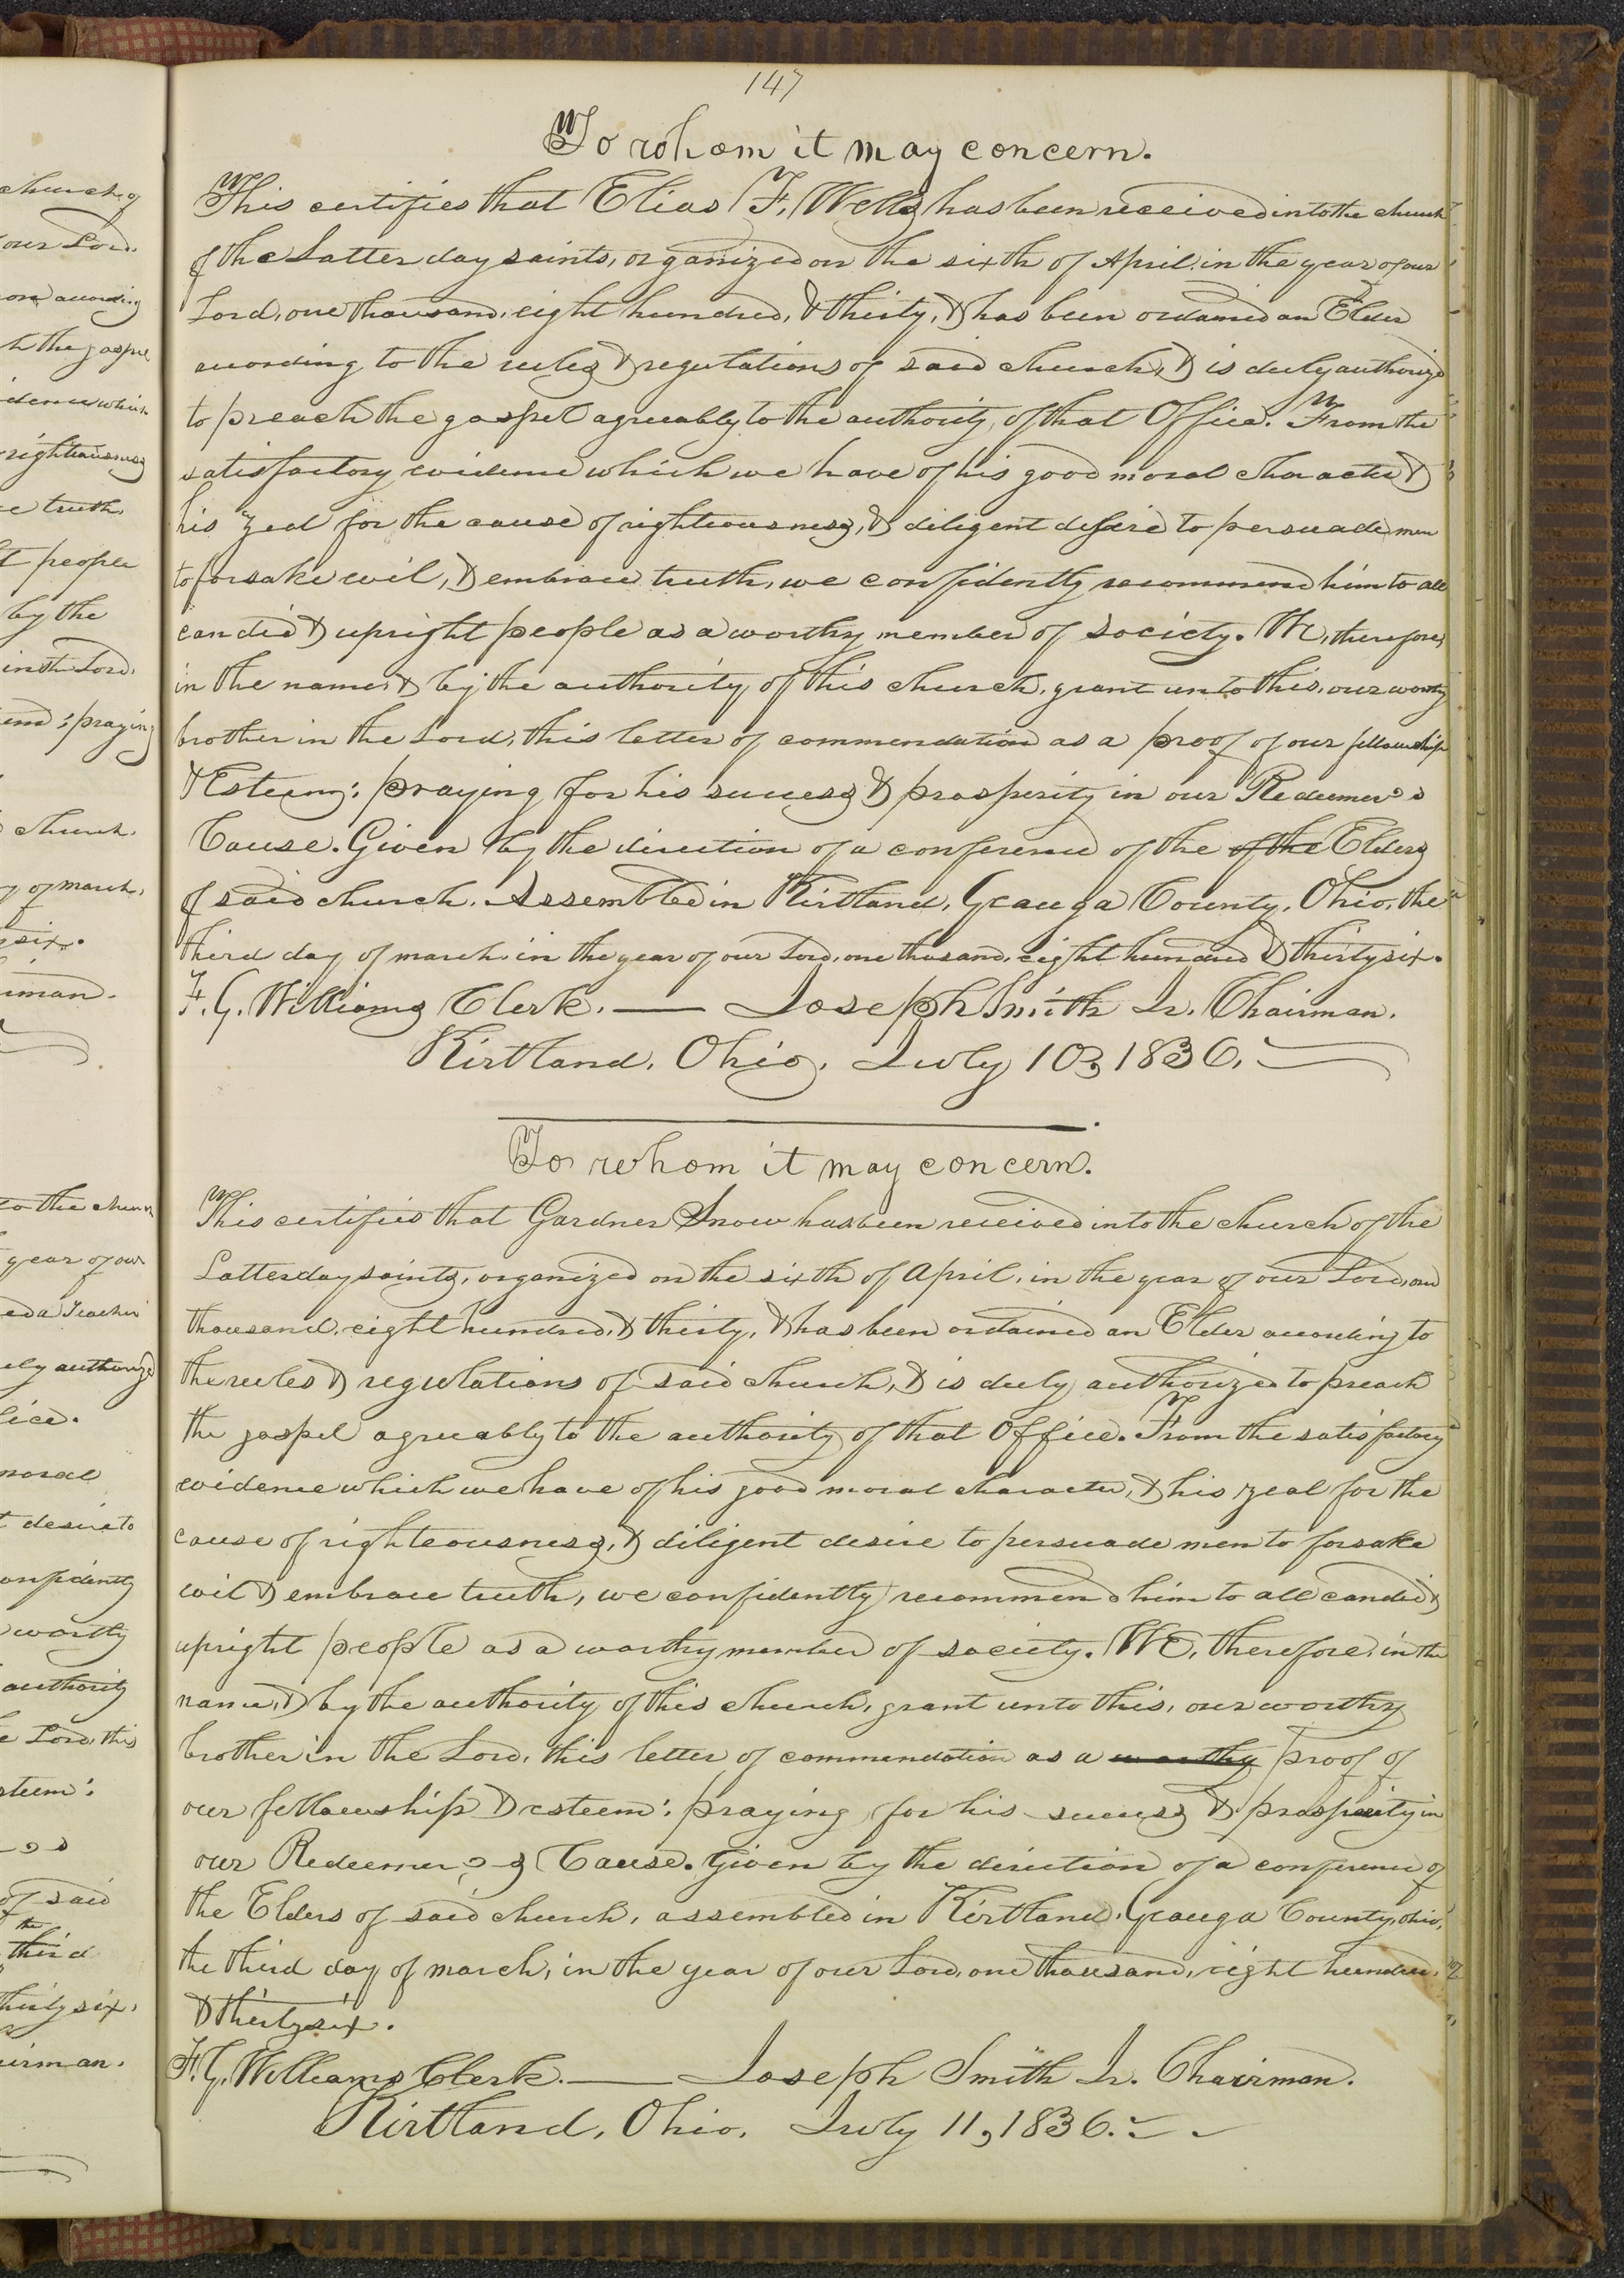 church of
our Lord.
accordig
h the gospel
idence which
righteousness
e truth,
t people
by the
in the Lord,
; praying
church.
y of march,
six.
man.
to the church
year of our
ed a Teacher
ly authorized
ice.
moral
t desire to
onfidently
worthy
authority
e Lord, this
steem:
of said
the
third
thirty six,
airman.
147
To whom it may concern.
This certifies that Elias F. Wells has been received into the church
of the Latter day saints, organized on the sixth of April, in the year of our
Lord, one thousand, eight hundred, & thirty, & has been ordained an Elder
according to the rules & regulations of said church, & is duly authorize
to preach the gospel agreeably to the authority, of that Office. From the
satisfactory evidence which we have of his good moral character &
his zeal for the cause of righteousness, & diligent desire to persuade men
to forsake evil, & embrace truth, we confidently recommend him to all
candid & upright people as a worthy member of society. We, therefore,
in the name, & by the authority, of this church, grant unto this, our worthy
brother in the Lord, this letter of commendation as a proof of our fellowship
& Esteem: praying for his success & prosperity in our Redeemer's
Cause. Given by the direction of a conference of the of the Elders
of said church. Assembled in Kirtland, Geauga County, Ohio, the
third day of march, in the year of our Lord, one thousand, eight hundred & thirty six.
F. G. Williams Clerk. — Joseph Smith Jr. Chairman.
Kirtland, Ohio, July 10, 1836.
To whom it may concern.
This certifies that Gardner Snow has been received into the church of the
Latter day saints, organized on the sixth of April, in the year of our Lord, one
thousand, eight hundred, & thirty, & has been ordained an Elder according to
the rules & regulations of said church, & is duly authorized to preach
the gospel agreeably to the authority of that Office. From the satisfactory
evidence which we have of his good moral character, & his zeal for the
cause of righteousness, & diligent desire to persuade men to forsake
evil & embrace truth, we confidently recommend him to all candid &
upright people as a worthy member of society. We, therefore, in the
name, & by the authority of this church, grant unto this, our worthy
brother in the Lord, this letter of commendation as a worthy proof of
our fellowship & esteem: praying for his success & prosperity in
our Redeemer's Cause. Given by the direction of a conference of
the Elders of said church, assembled in Kirtland, Geauga County, Ohio,
the third day of march, in the year of our Lord, one thousand, eight hundred,
& thirty six.
F. G. Williams Clerk. — Joseph Smith Jr. Chairman.
Kirtland, Ohio, July 11, 1836.